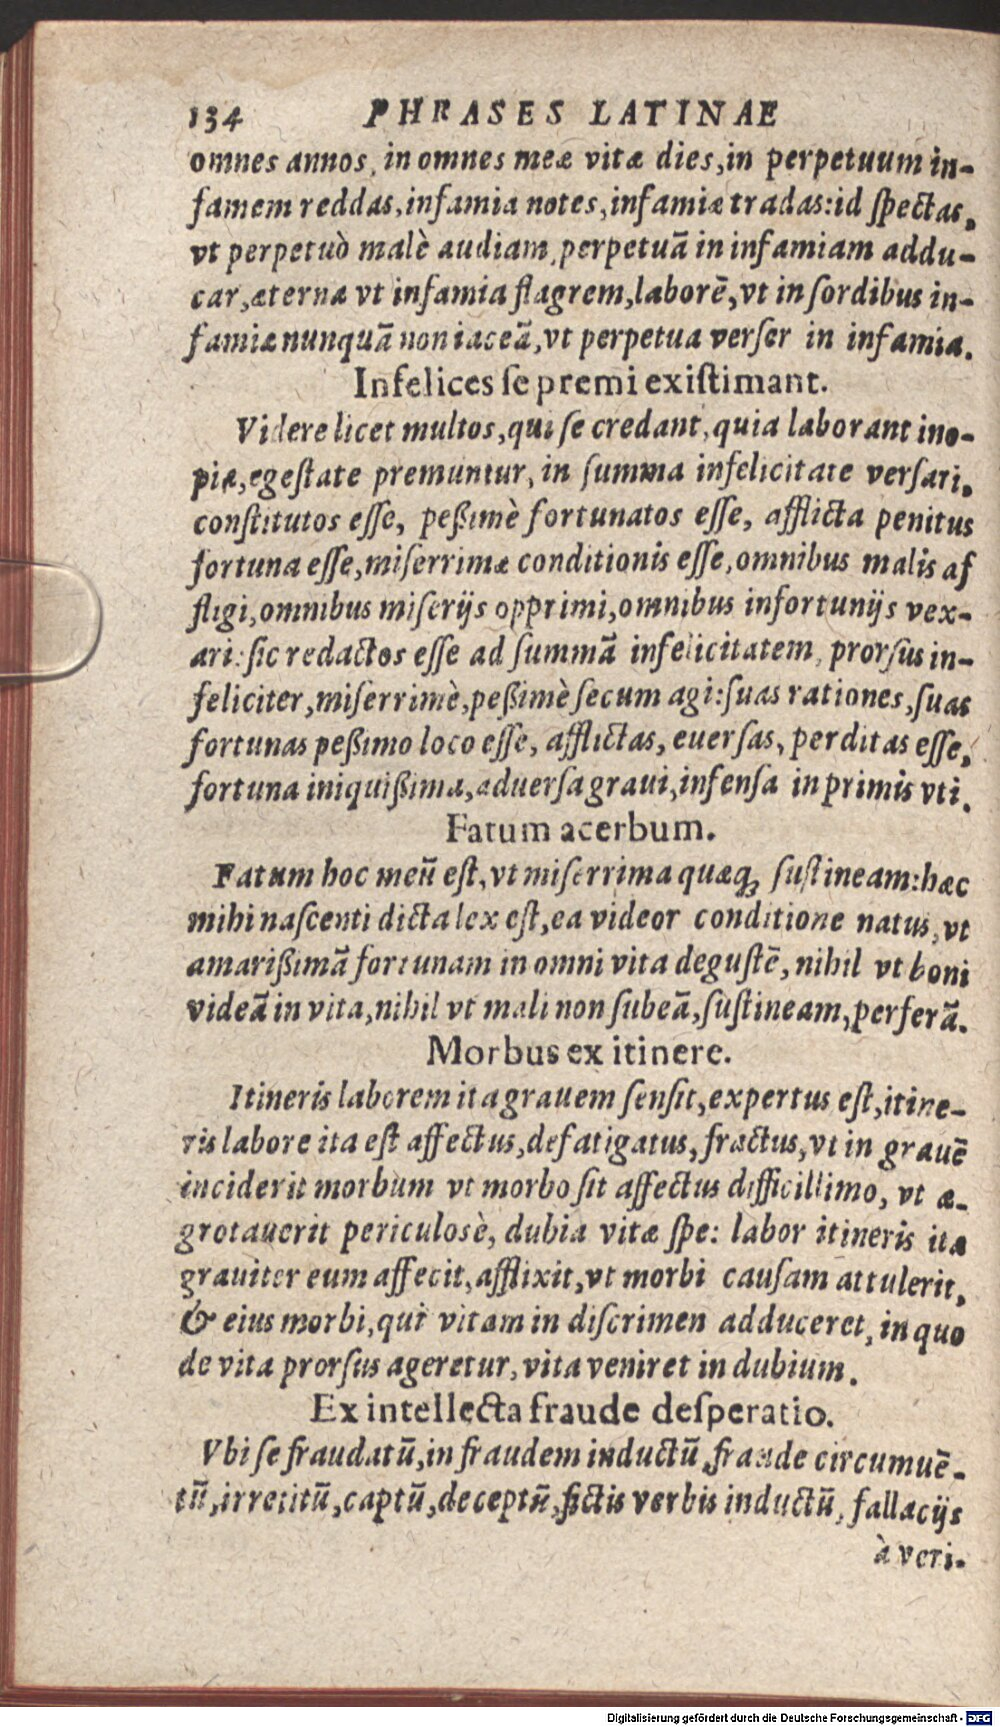 134 PHRASES LATINAE
omnes annos, in omnes meæ vitæ dies, in perpetuum in-
famem reddas, infamia notes, infamiæ tradas: id ſpectas,
vt perpetuò malè audiam, perpetuā in infamiam addu-
car, æternæ vt infamia flagrem, laborē, vt in ſordibus in-
famiæ nunquā non iaceā, vt perpetua verſer in infamia.
Infelices ſe premi exiſtimant.
Videre licet multos, qui ſe credant, quia laborant ino-
piæ, egeſtate premuntur, in ſumma infelicitate verſari,
conſtitutos eſſe, peßimè fortunatos eſſe, afflicta penitus
fortuna eſſe, miſerrimæ conditionis eſſe, omnibus malis af
fligi, omnibus miſerijs opprimi, omnibus infortunijs vex-
ari: ſic redactos eſſe ad ſummā infelicitatem, prorſus in-
feliciter, miſerrimè, peßimè ſecum agi: ſuas rationes, ſuas
fortunas peßimo loco eſſe, afflictas, euerſas, perditas eſſe,
fortuna iniquißima, aduerſa graui, infenſa in primis vti.
Fatum acerbum.
Fatum hoc meū eſt, vt miſerrima quæq; ſuſtineam: hæc
mihi naſcenti dicta lex eſt, ea videor conditione natus, vt
amarißimā fortunam in omni vita deguſtē, nihil vt boni
videā in vita, nihil vt mali non ſubeā, ſuſtineam, perferā.
Morbus ex itinere.
Itineris laborem ita grauem ſenſit, expertus eſt, itine-
ris labore ita eſt affectus, defatigatus, fractus, vt in grauē
inciderit morbum vt morbo ſit affectus difficillimo, vt æ-
grotauerit periculosè, dubia vitæ ſpe: labor itineris ita
grauiter eum affecit, afflixit, vt morbi cauſam attulerit,
& eius morbi, qui vitam in diſcrimen adduceret, in quo
de vita prorſus ageretur, vita veniret in dubium.
Ex intellecta fraude deſperatio.
Vbi ſe fraudatū, in fraudem inductū, fraude circumuē-
tū, irretitū, captū, deceptū, fictis verbis inductū, fallacijs
à veri-
Digitalisierung gefördert durch die Deutsche Forschungsgemeinschaft - DFG